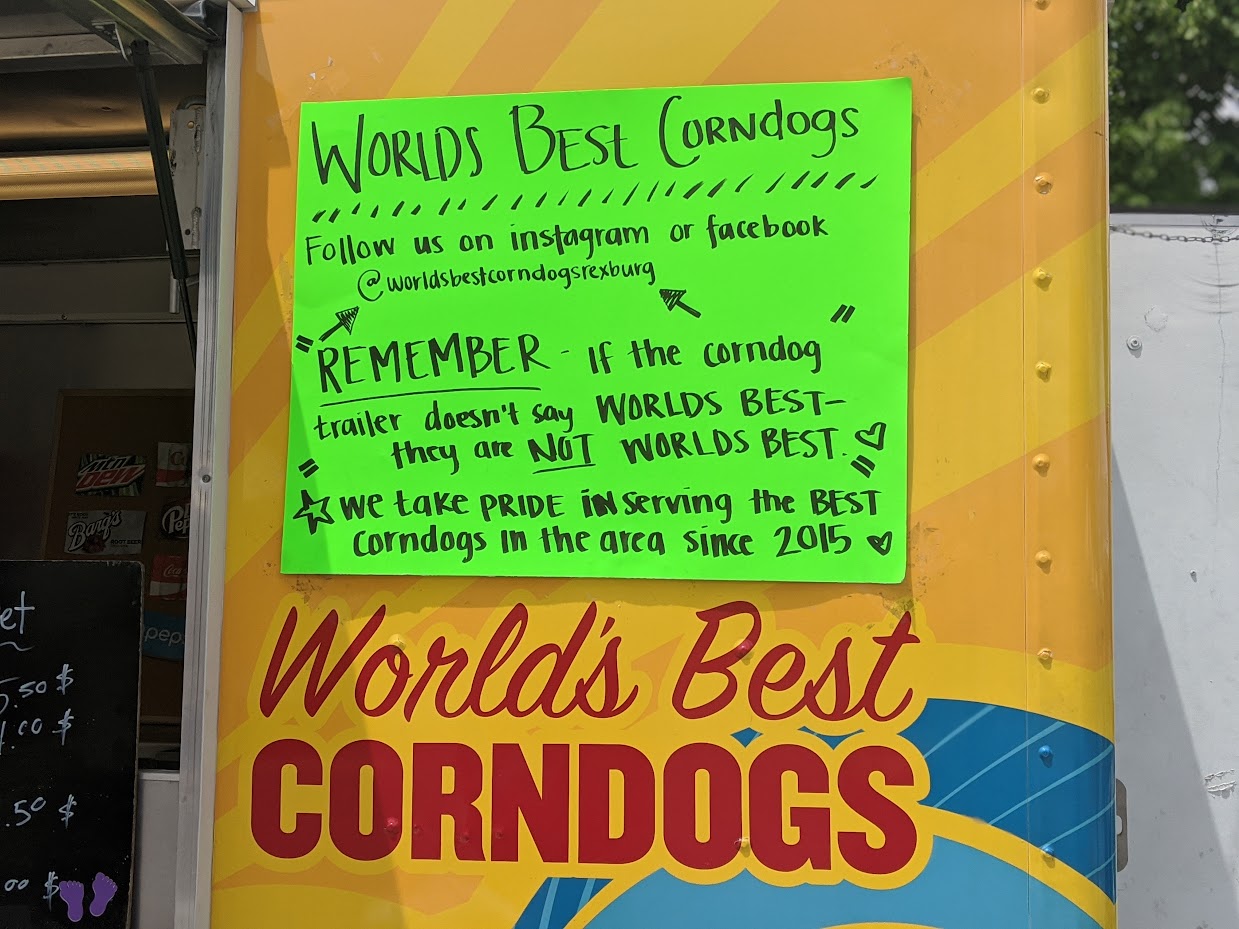 WORLDS BEST CORNdogs
Follow us on instagram or facebook
@worldsbestcorndogsrexburg
"REMEMBER - If the corndog "
trailer doesn't say WORLDS BEST-
they are NOT WORLDS BEST.
" "
we take PRIDE IN serving the BEST
corndogs in the area since 2015
World's Best
CORNDOGS
mtn
DEW
Barq's
ROOT BEER
Pep
Coca
pep
et
5.50 $
.00 $
.50 $
00 $